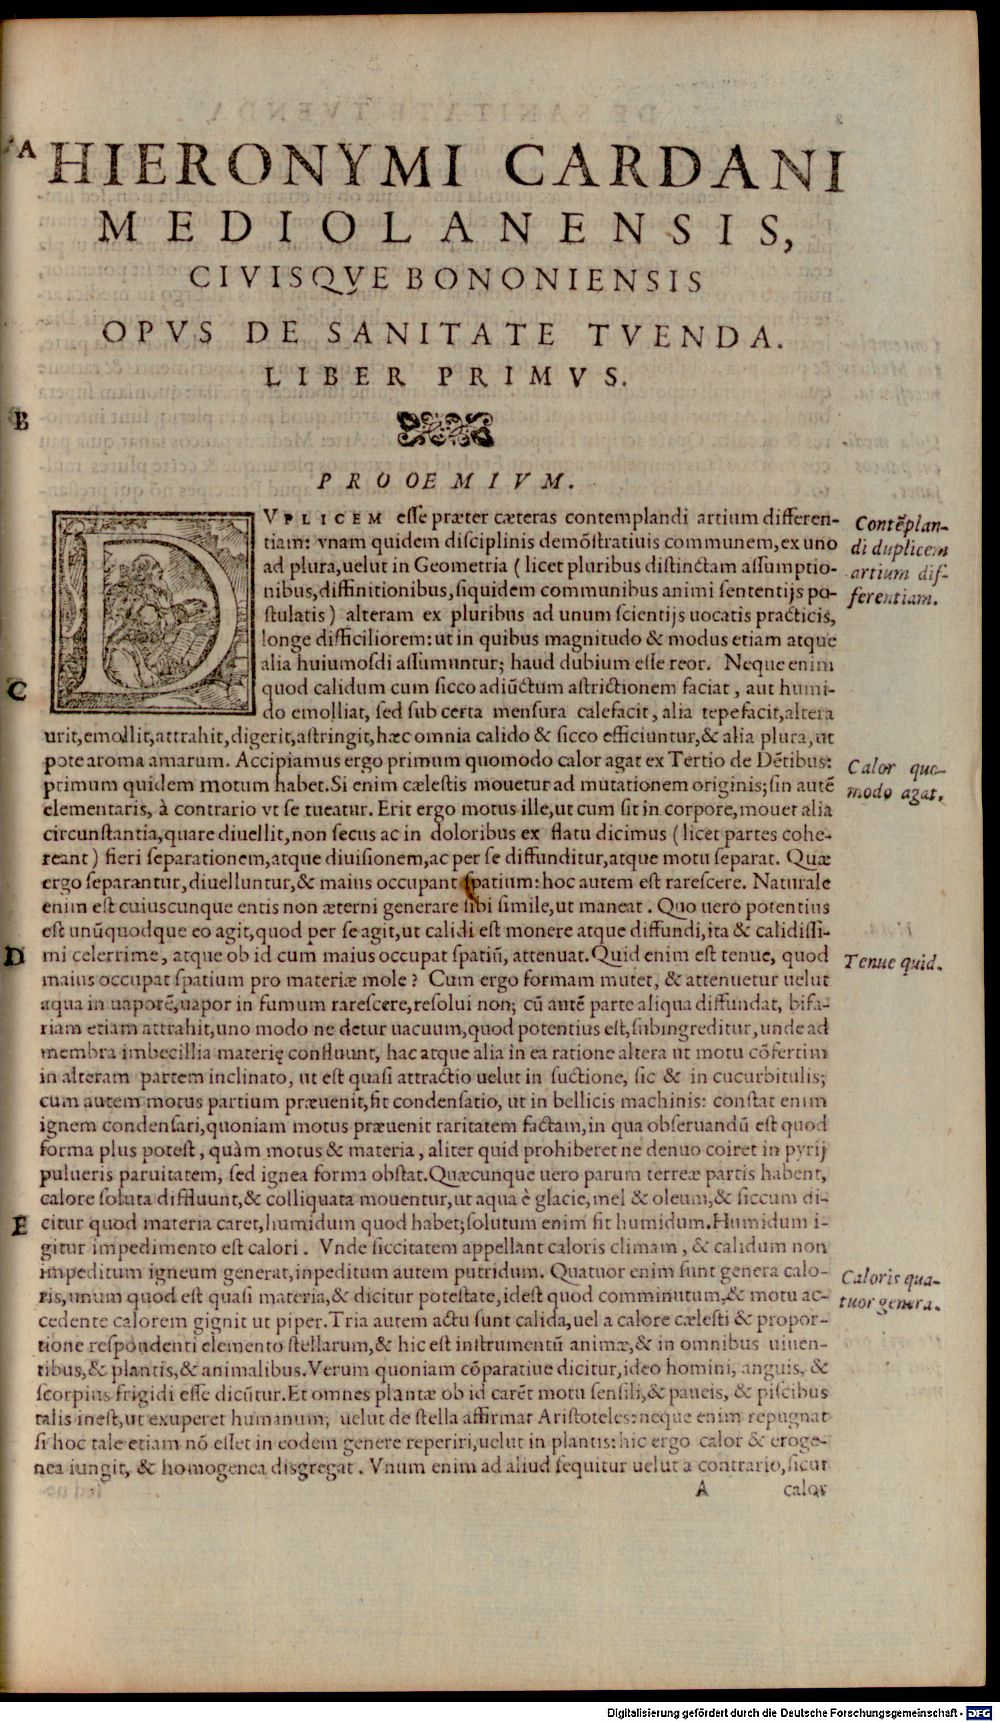 A HIERONYMI CARDANI
MEDIOLANENSIS,
CIVISQVE BONONIENSIS
OPVS DE SANITATE TVENDA.
LIBER PRIMVS.
B
PROOEMIVM.
DVPLICEM esse præter cæteras contemplandi artium differen-
tiam: vnam quidem disciplinis demõstratiuis communem, ex uno
ad plura, uelut in Geometria (licet pluribus distinctam assumptio-
nibus, diffinitionibus, siquidem communibus animi sententijs po-
stulatis) alteram ex pluribus ad unum scientijs uocatis practicis,
longe difficiliorem: ut in quibus magnitudo & modus etiam atque
alia huiusmodi assumuntur; haud dubium esse reor. Neque enim
quod calidum cum sicco adiũctum astrictionem faciat, aut humi-
do emolliat, sed sub certa mensura calefacit, alia tepefacit, altera
urit, emollit, attrahit, digerit, astringit, hæc omnia calido & sicco efficiuntur, & alia plura, ut
pote aroma amarum. Accipiamus ergo primum quomodo calor agat ex Tertio de Dẽtibus:
primum quidem motum habet. Si enim cælestis mouetur ad mutationem originis; sin autẽ
elementaris, à contrario vt se tueatur. Erit ergo motus ille, ut cum sit in corpore, mouet alia
circunstantia, quare diuellit, non secus ac in doloribus ex flatu dicimus (licet partes cohe-
reant) fieri separationem, atque diuisionem, ac per se diffunditur, atque motu separat. Quæ
ergo separantur, diuelluntur, & maius occupant spatium: hoc autem est rarescere. Naturale
enim est cuiuscunque entis non æterni generare sibi simile, ut maneat. Quo uero potentius
est unũquodque eo agit, quod per se agit, ut calidi est monere atque diffundi, ita & calidissi-
mi celerrime, atque ob id cum maius occupat spatiũ, attenuat. Quid enim est tenue, quod
maius occupat spatium pro materiæ mole? Cum ergo formam mutet, & attenuetur uelut
aqua in uaporẽ, uapor in fumum rarescere, resolui non; cũ autẽ parte aliqua diffundat, bifa-
riam etiam attrahit, uno modo ne detur uacuum, quod potentius est, subingreditur, unde ad
membra imbecillia materię confluunt, hac atque alia in ea ratione altera ut motu cõfertim
in alteram partem inclinato, ut est quasi attractio uelut in suctione, sic & in cucurbitulis;
cum autem motus partium præuenit, fit condensatio, ut in bellicis machinis: constat enim
ignem condensari, quoniam motus præuenit raritatem factam, in qua obseruandũ est quod
forma plus potest, quàm motus & materia, aliter quid prohiberet ne denuo coiret in pyrij
pulueris paruitatem, sed ignea forma obstat. Quæcunque uero parum terreæ partis habent,
calore soluta diffluunt, & colliquata mouentur, ut aqua è glacie, mel & oleum, & siccum di-
citur quod materia caret, humidum quod habet; solutum enim fit humidum. Humidum i-
gitur impedimento est calori. Vnde siccitatem appellant caloris climam, & calidum non
impeditum igneum generat, inpeditum autem putridum. Quatuor enim sunt genera calo-
ris, unum quod est quasi materia, & dicitur potestate, idest quod comminutum, & motu ac-
cedente calorem gignit ut piper. Tria autem actu sunt calida, uel a calore cælesti & propor-
tione respondenti elemento stellarum, & hic est instrumentũ animæ, & in omnibus uiuen-
tibus, & plantis, & animalibus. Verum quoniam cõparatiue dicitur, ideo homini, anguis, &
scorpius frigidi esse dicũtur. Et omnes plantæ ob id carẽt motu sensili, & paucis, & piscibus
talis inest, ut exuperet humanum; uelut de stella affirmat Aristoteles: neque enim repugnat
si hoc tale etiam nõ esset in eodem genere reperiri, uelut in plantis: hic ergo calor & eroge-
nea iungit, & homogenea disgregat. Vnum enim ad aliud sequitur uelut a contrario, sicut
A calor
Contẽplan-
di duplicem
artium dif-
ferentiam.
C
Calor quo-
modo agat.
D
Tenue quid.
E
Caloris qua-
tuor genera.
Digitalisierung gefördert durch die Deutsche Forschungsgemeinschaft - DFG